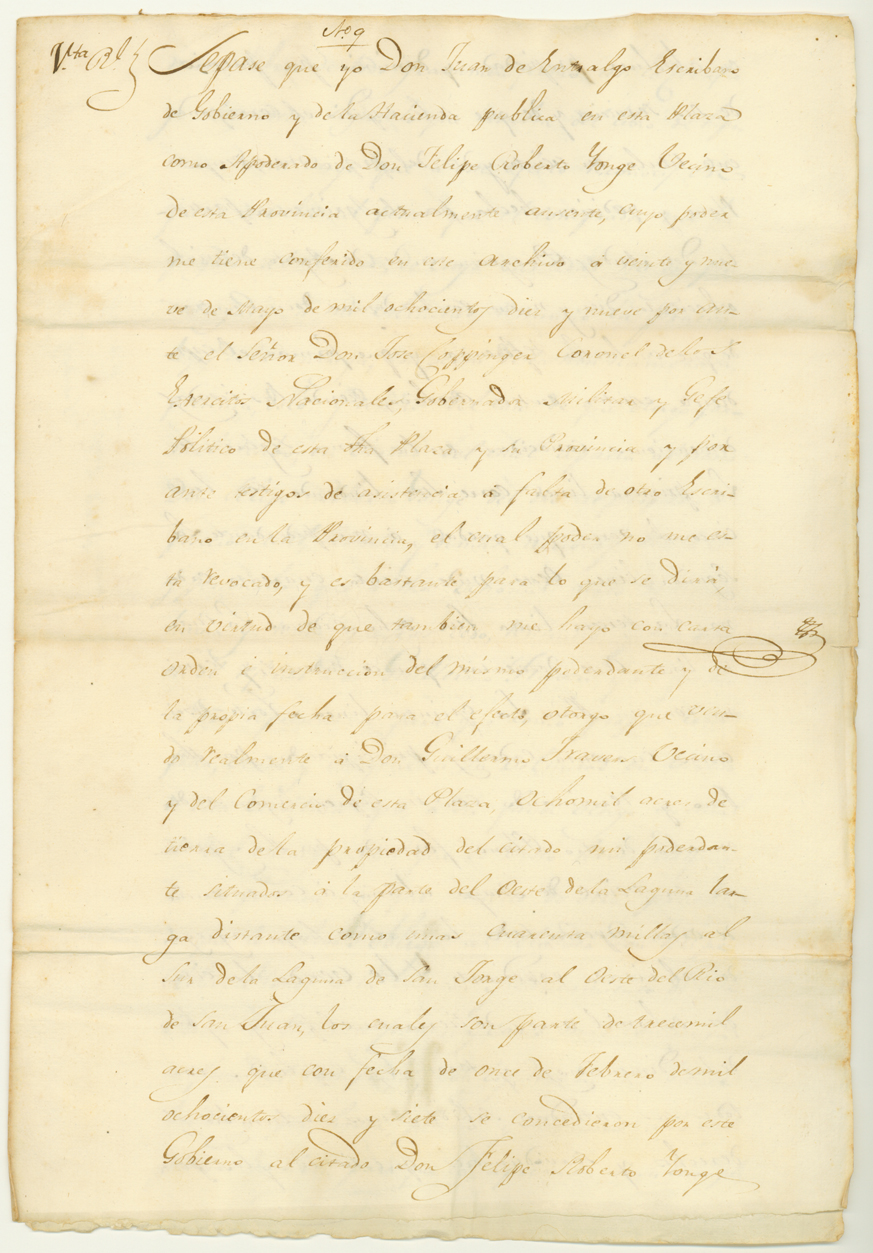 No. 9
V.ta Rl. Sepase que yo Don Juan de Entralgo Escribano
de Gobierno y de la Hacienda publica en esta Plaza
como Apoderado de Don Felipe Roberto Yonge Vecino
de esta Provincia actualmente ausente, cuyo poder
me tiene conferido en este archivo á veinte y nue-
ve de Mayo de mil ochocientos diez y nueve por an-
te el Señor Don Jose Coppinger Coronel de los
Exercitos Nacionales, Gobernador Militar y Gefe
Politico de esta dha Plaza y su Provincia y por
ante testigos de asistencia á falta de otro Escri-
bano en la Provincia, el cual poder no me es-
ta revocado, y es bastante para lo que se dirá,
en virtud de que tambien me hayo con carta
orden é instruccion del mismo poderdante y de
la propia fecha para el efecto, otorgo que ven-
do realmente á Don Guillermo Travers Vecino
y del Comercio de esta Plaza, Ochomil acres de
tierra de la propiedad del citado mi poderdan-
te situados á la parte del Oeste de la Laguna lar-
ga distante como unas Cuarenta millas al
Sur de la Laguna de San Jorge al Oeste del Rio
de San Juan, los cuales son parte de trecemil
acres que con fecha de once de Febrero de mil
ochocientos diez y siete se concedieron por este
Gobierno al citado Don Felipe Roberto Yonge